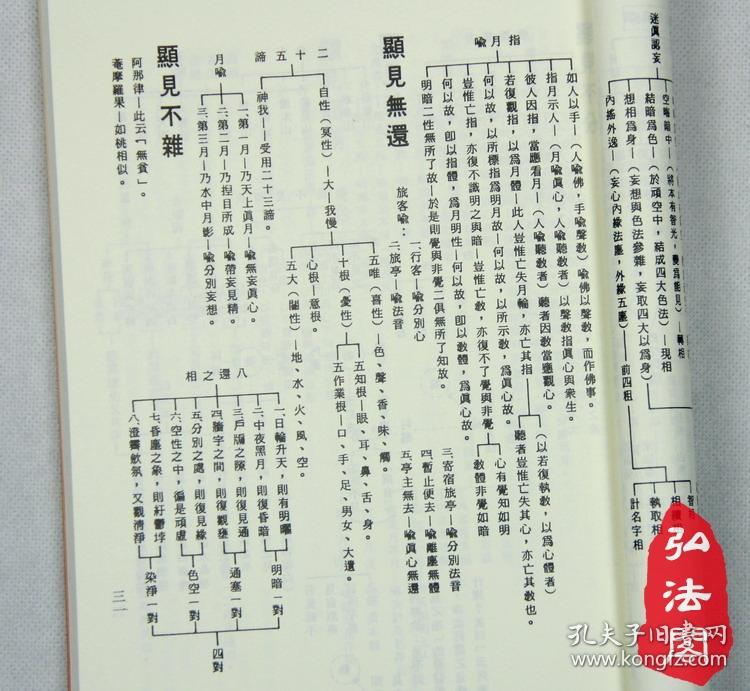 迷真認妄
結暗為色—(於頑空中,結成四大色法)—現相
想相為身—(妄想與色法參雜,妄取四大以為身)
內搖外逸—(妄心內緣法塵,外緣五塵)
前四相
執取相
計名字相
指月喻
如人以手—(人喻佛,手喻聲教)喻佛以聲教,而作佛事。
指月示人—(月喻真心,人喻聽教者)以聲教指真心與衆生。
彼人因指,當應看月—(人喻聽教者)聽者因教當應觀心。
若復觀指,以為月體—此人豈惟亡失月輪,亦亡其指
(以若復執教,以為心體者)
聽者豈惟亡失其心,亦亡其教也。
何以故,以所標指為明月故—何以故,以所示教,為真心故。
豈惟亡指,亦復不識明之與暗—豈惟亡教,亦復不了覺與非覺
心有覺知如明
教體非覺如暗
何以故,即以指體,為月明性—何以故,即以教體,為真心故。
明暗二性無所了故—於是則覺與非覺二俱無所了知故。
顯見無還
旅客喻:
一、行客—喻分別心
二、旅亭—喻法音
三、寄宿旅亭—喻分別法音
四、暫止便去—喻離塵無體
五、亭主無去—喻真心無還
二十五諦
自性(冥性)—大—我慢
五唯(喜性)—色、聲、香、味、觸。
十根(憂性)
五知根—眼、耳、鼻、舌、身。
五作業根—口、手、足、男女、大遺。
心根—意根。
五大(闇性)—地、水、火、風、空。
神我—受用二十三諦。
月喻
一、第一月—乃天上真月—喻無妄真心。
二、第二月—乃捏目所成—喻帶妄見精。
三、第三月—乃水中月影—喻分別妄想。
八還之相
一、日輪升天,則有明曜
二、中夜黑月,則復昏暗
明暗一對
三、戶牖之隙,則復見通
四、牆宇之間,則復觀壅
通塞一對
五、分別之處,則復見緣
六、空性之中,徧是頑虛
色空一對
七、昏塵之象,則紆鬱㶿
八、澄霽斂氛,又觀清淨
染淨一對
四對
顯見不雜
阿那律—此云「無貧」。
菴摩羅果—如桃相似。
三一
弘法閣
孔夫子旧书网
www.kongfz.com